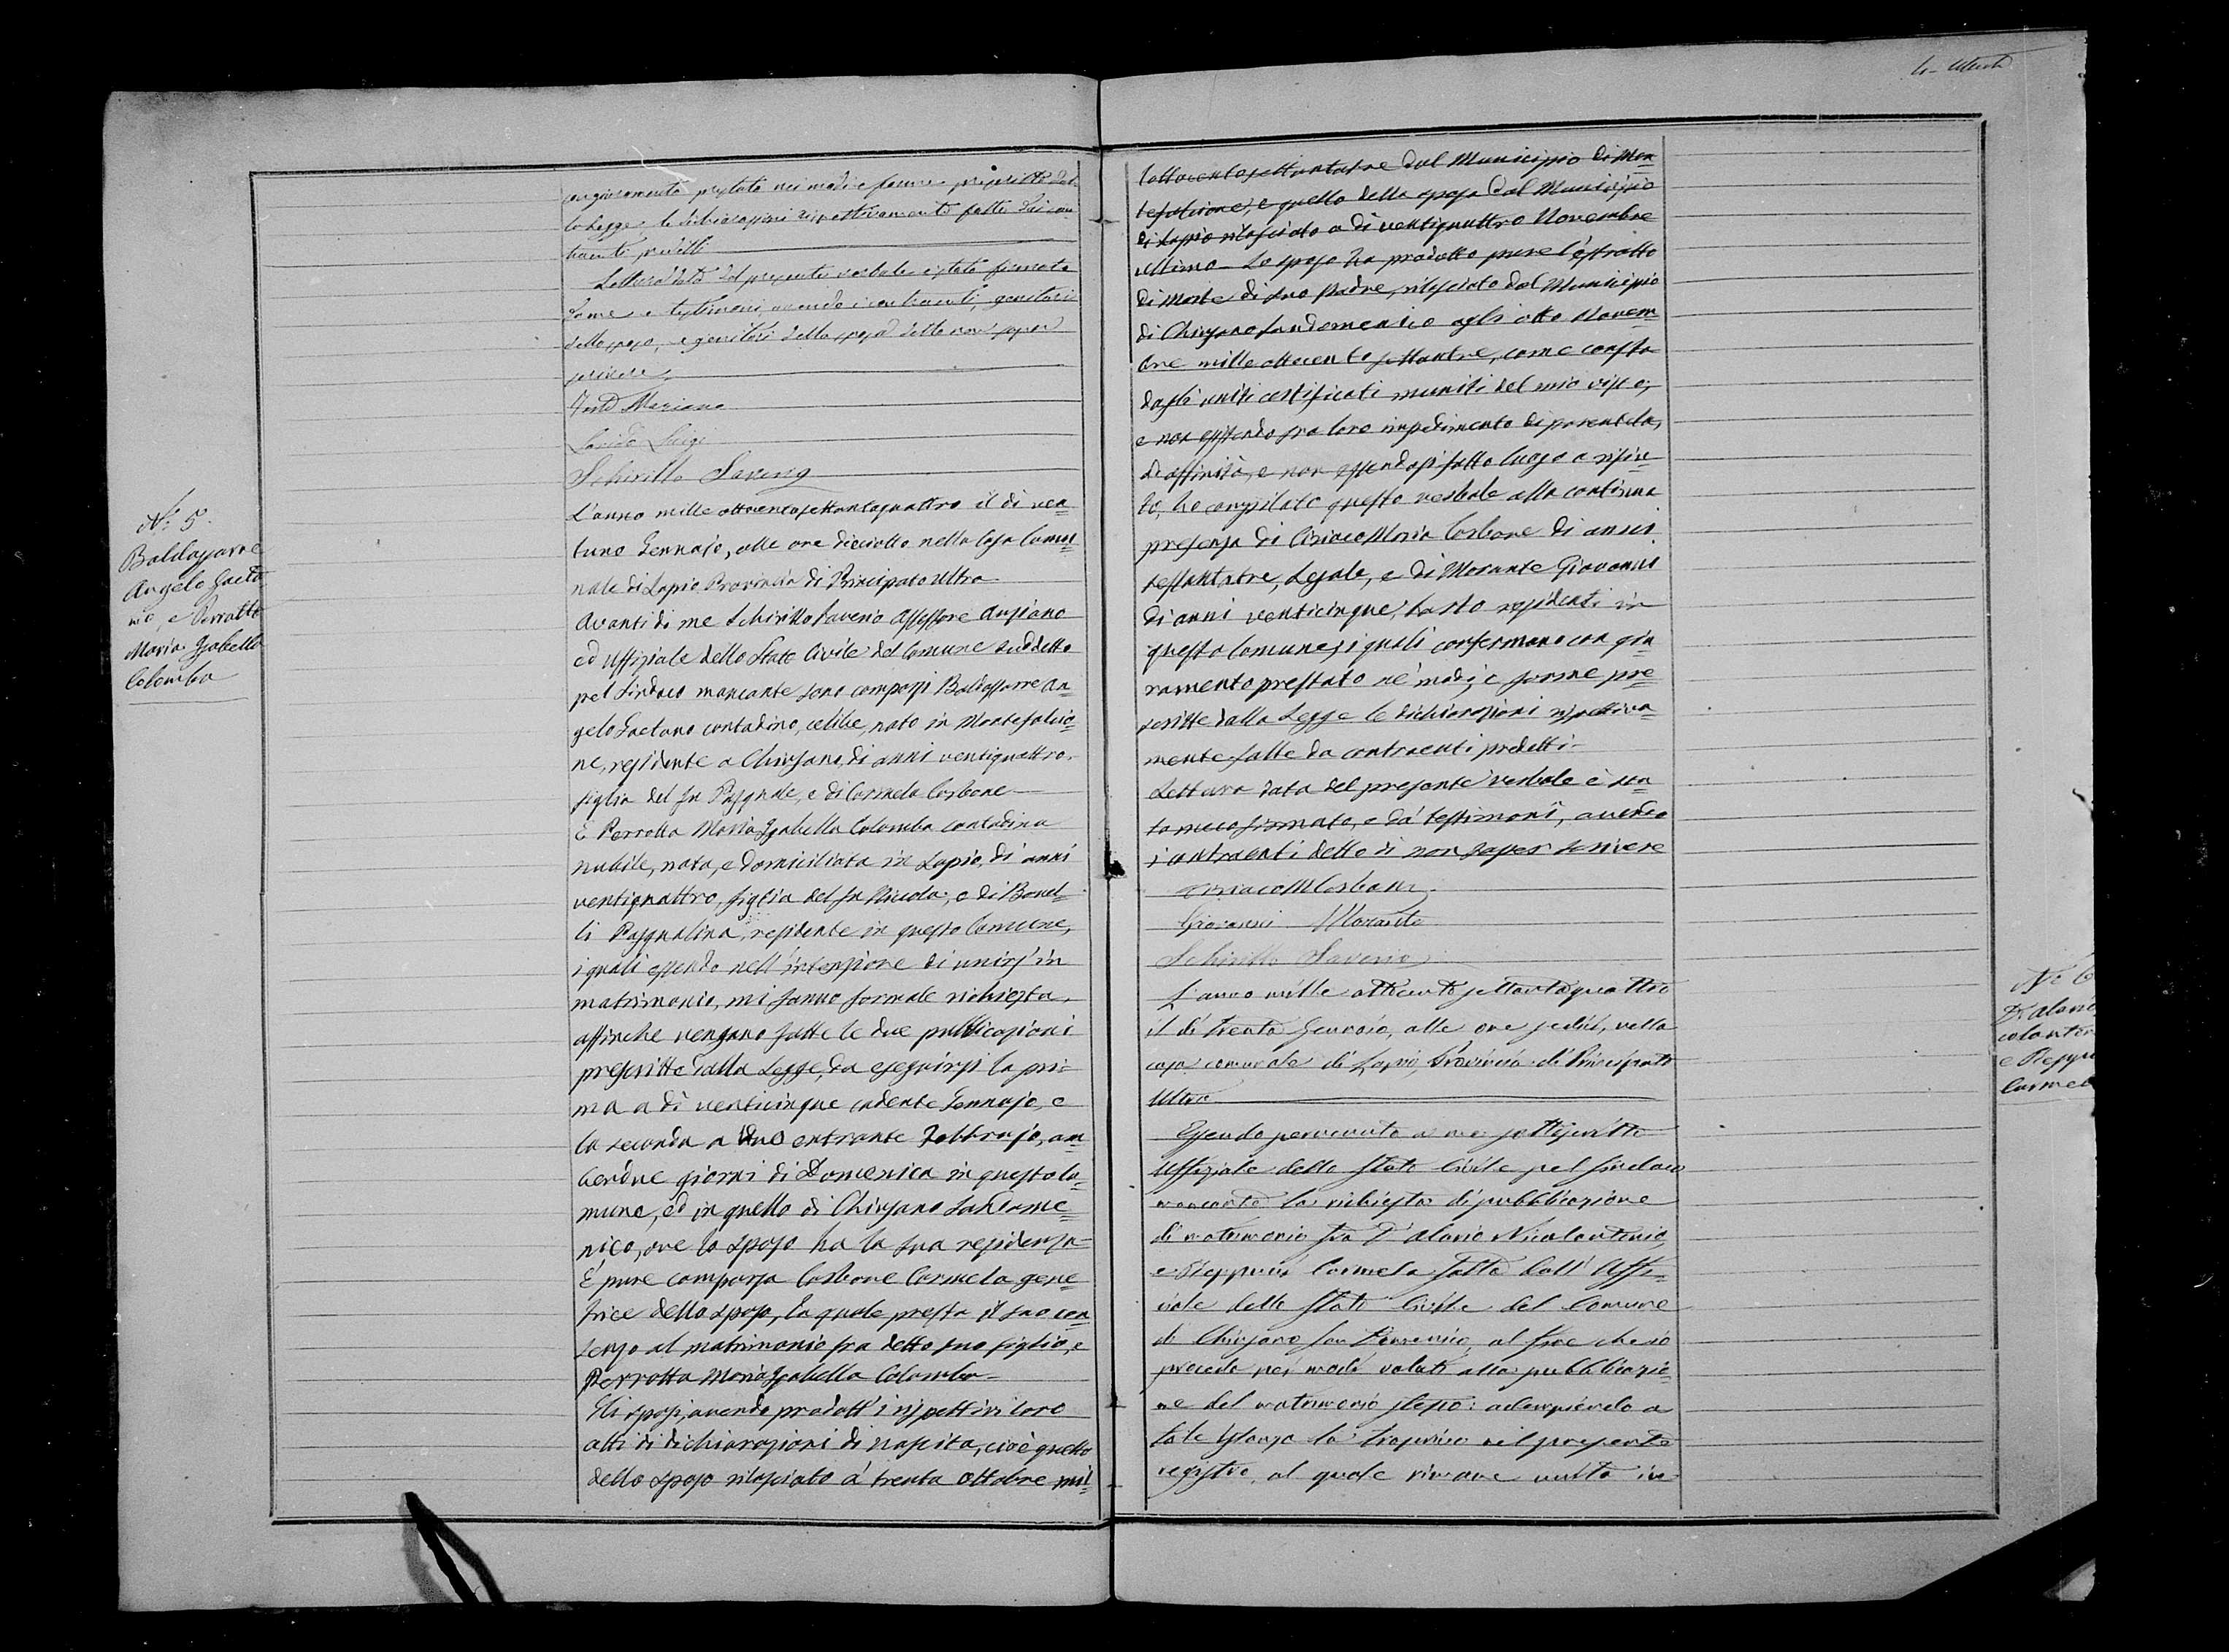 con giuramento prestato nei modi e forme prescritte dal
la Legge, le dichiarazioni rispettivamente fatte dai con
traenti predetti
Lettura data del presente verbale è stato firmato
da me e testimoni, avendo i contraenti, genitori
dello sposo, e genitori della sposa detto non saper
scrivere
Mariano
Luigi
Schirillo Saverio
N.º 5.
Baldassarre
Angelo Gaeta
no, e Perrotta
Maria Isabella
Colomba
L'anno mille ottocentosettantaquattro il dì ven
tuno Gennajo, alle ore dieciotto nella Casa Comu
nale di Lapio Provincia di Principato Ultra
Avanti di me Schirillo Saverio Assessore Anziano
ed Uffiziale dello Stato Civile del Comune suddetto
pel Sindaco mancante sono comparsi Baldassarre An
gelo Gaetano contadino, celibe, nato in Montefalcio
ne, residente a Chiusano, di anni ventiquattro,
figlio del fu Pasquale, e di Carmela Carbone
E Perrotta Maria Isabella Colomba contadina
nubile, nata, e domiciliata in Lapio, di anni
ventiquattro, figlia del fu Nicola, e di Bonel
li Pasqualina, residente in questo Comune,
i quali essendo nell'intenzione di unirsi in
matrimonio, mi fanno formale richiesta,
affinche vengano fatte le due pubblicazioni
prescritte dalla Legge, da eseguirsi la pri
ma a dì venticinque cadente Gennajo, e
la seconda a due entrante Febbrajo, am
bendue giorni di Domenica in questo Co
mune, ed in quello di Chiusano Sandome
nico, ove lo sposo ha la sua residenza
È pure comparsa Carbone Carmela geni
trice dello sposo, la quale presta il suo con
senso al matrimonio fra detto suo figlio, e
Perrotta Maria Isabella Colomba
Gli sposi, avendo prodotti i rispettivi loro
atti di dichiarazioni di nascita, cioè quello
dello sposo rilasciato a' trenta Ottobre mil
lottocentosettantatre dal Municipio di Mon
tefalcione, e quello della sposa dal Municipio
di Lapio rilasciato a dì ventiquattro Novembre
ultimo. Lo sposo ha prodotto pure l'estratto
di Morte di suo Padre, rilasciato dal Municipio
di Chiusano Sandomenico agli otto Novem
bre mille ottocento settantre, come consta
dagli uniti certificati muniti del mio visto;
e non essendo fra loro impedimento di parentela,
di affinità, e non essendosi fatto luogo a rifiu
to, ho compilato questo verbale alla continua
presenza di Ciriaco Maria Carbone di anni
sessantatre, Legale, e di Morante Giovanni
di anni venticinque, Sarto residenti in
questo Comune, i quali confermano con giu
ramento prestato ne' modi, e forme pre
scritte dalla Legge le dichiarazioni rispettiva
mente fatte da contraenti predetti
Lettura data del presente verbale è sta
to meco firmato, e da' testimonî, avendo
i contraenti detto di non saper scrivere
Ciriaco M Carbone
Giovanni Morante
Schirillo Saverio
L'anno mille ottocento settantaquattro
il dì trenta Gennaio, alle ore sedici, nella
casa comunale di Lapio, Provincia di Principato
Ultra
Essendo pervenuta a me sottoscritto
Uffiziale dello Stato Civile pel Sindaco
mancante la richiesta di pubblicazione
di matrimonio fra D'Alovio Nicolantonio,
e Carmela fatta dall'Uffi
ziale dello Stato Civile del Comune
di Chiusano San Domenico, al fine che io
proceda nei modi voluti alla pubblicazio
ne del matrimonio stesso: adempiendo a
tale istanza la trascrivo nel presente
registro, al quale rimane unita in
N.º 6
D'Alovio
colanton
e
Carmel